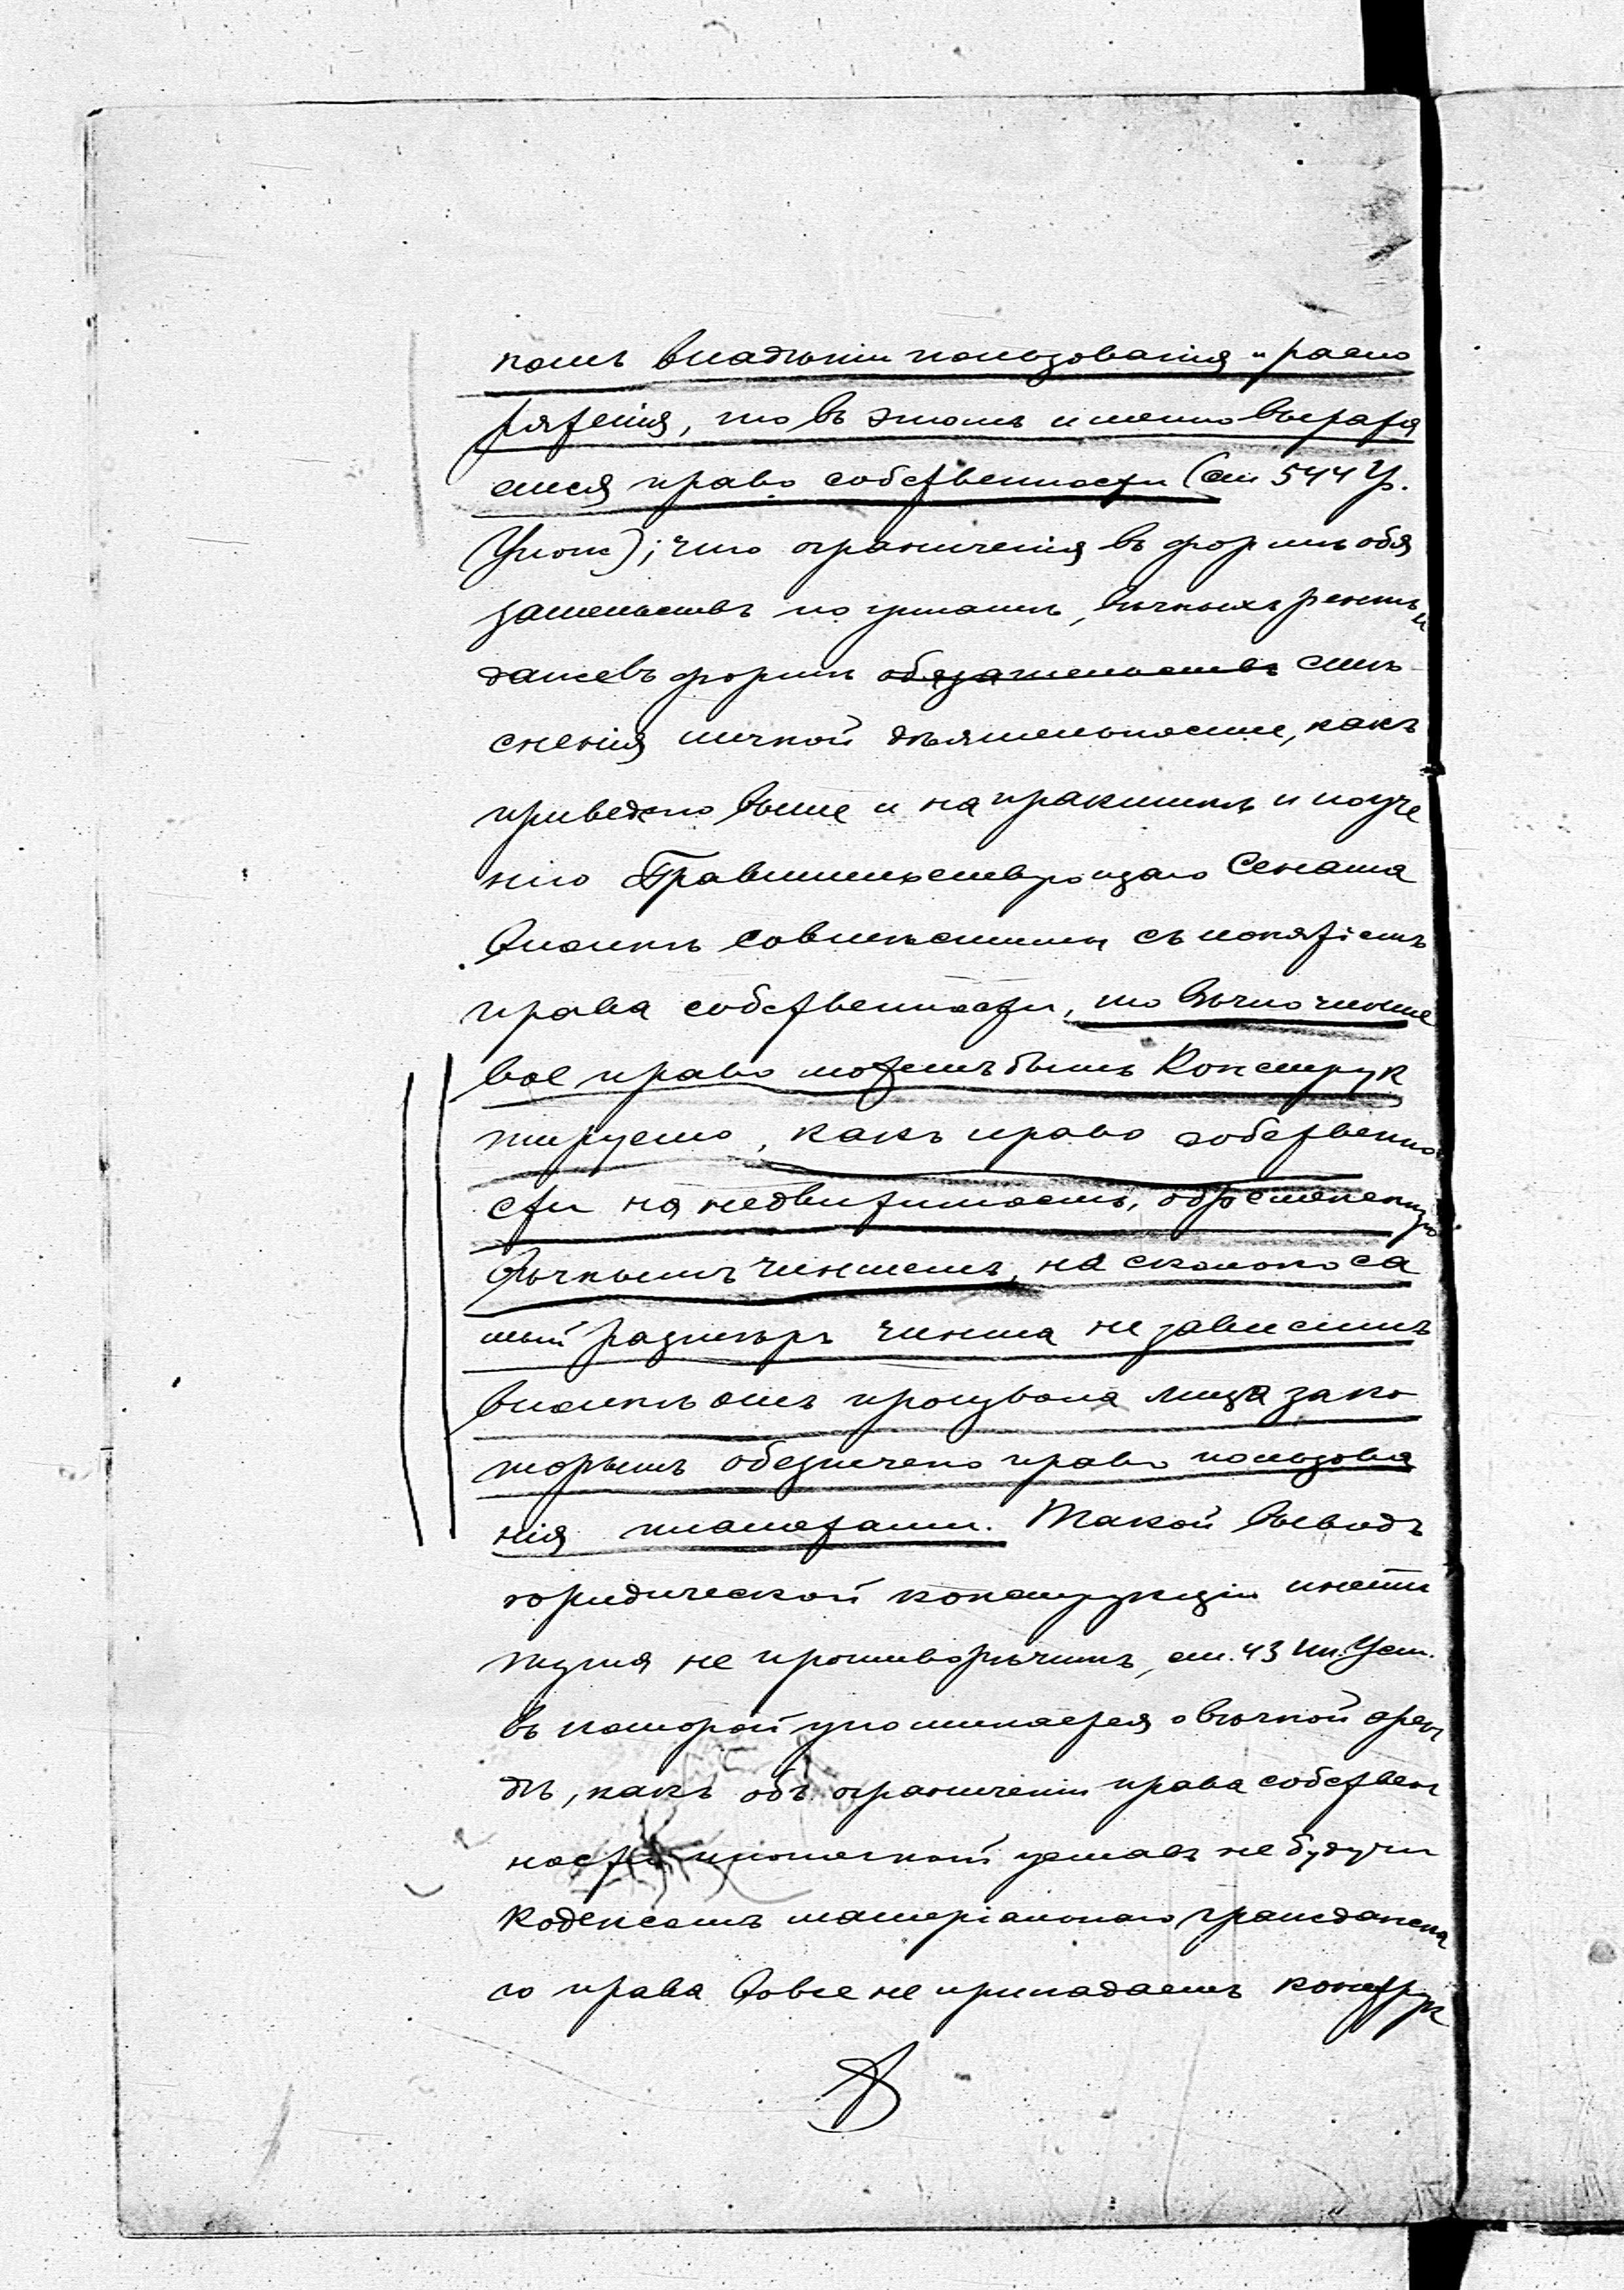 комъ владѣніи пользованія и распо
ряженія, то въ этомъ именно выража
ется право собственности (ст 544 Гр.
Улож); что ограниченія въ формѣ обя
зательствъ по уплатѣ, вѣчныхъ рентъ и
даже въ формѣ обязательствъ стѣ
сненія личной дѣятельности, какъ
приведено выше и на практикѣ и по уче
нію Правительствующаго Сената
вполнѣ совмѣстимы съ понятіемъ
права собственности, то вѣчно чинше
вое право можетъ быть Конструк
тируемо, какъ право собственно
сти на недвижимость, обремененную
вѣчнымъ чиншемъ, на сколько са
мый размѣръ чинша не зависитъ
вполнѣ отъ произвола лица за ко
торымъ обезпечено право пользова
нія платежами. Такой выводъ
юридической конструкціи инсти
тута не противорѣчитъ, ст. 43 Ип. Уст.
въ которой упоминается о вѣчной арен
дѣ, какъ объ ограниченіи права собствен
ности ипотечный уставъ не будучи
Кодексомъ матеріальнаго гражданска
го права вовсе не придадаетъ конструк